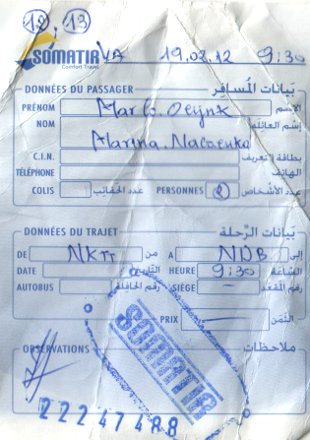 12, 13
SOMATIR VA 19.02.12 9:30
Comfort Travel
DONNÉES DU PASSAGER بيانات المسافر
PRÉNOM الإسم
NOM إسم العائلة
Marina
C.I.N. بطاقة تعريف
TÉLÉPHONE الهاتف
COLIS عدد الحقائب PERSONNES 2 عدد الأشخاص
DONNÉES DU TRAJET بيانات الرحلة
DE NKTT من A NDB إلى
DATE التاريخ HEURE 9:30 الساعة
AUTOBUS رقم الحافلة SIÉGE – رقم المقعد
PRIX الثمن
OBSERVATIONS ملاحظات
SOMATIR
22247488